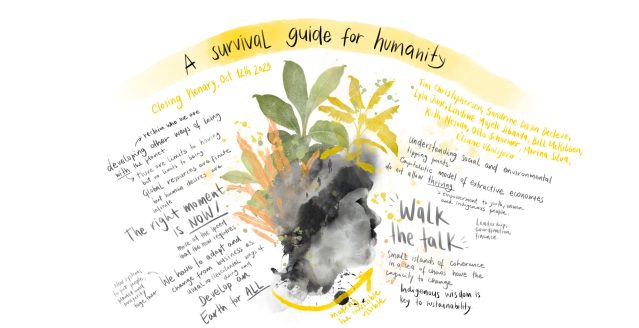 A survival guide for humanity
Closing Plenary, Oct 12th 2023
reclaim who we are
developing other ways of being
with the planet.
there are limits to having
but no limits to being
Global resources are finite
but human desires are
infinite
The right moment
is NOW!
more of the same
that the now requires
We have to adapt and
change from business as
usual
ways of
doing and
Develop an
Earth for ALL
to put people
planet and
prosperity
together
Tim Christophersen, Sandrine Dixson Declève,
Lyla June, Lindiwe Majele Sibanda, Bill McKibben,
Otto Scharmer, Marina Silva,
Understanding social and environmental
tipping points
Capitalistic model of extractive economies
do not allow thriving
empowerment to youth, women
and indigenous people.
Walk
the talk
Leadership
coordination
finance
Small islands of coherence
in a sea of chaos have the
capacity to change
Indigenous wisdom is
key to sustainability
making
the invisible
visible